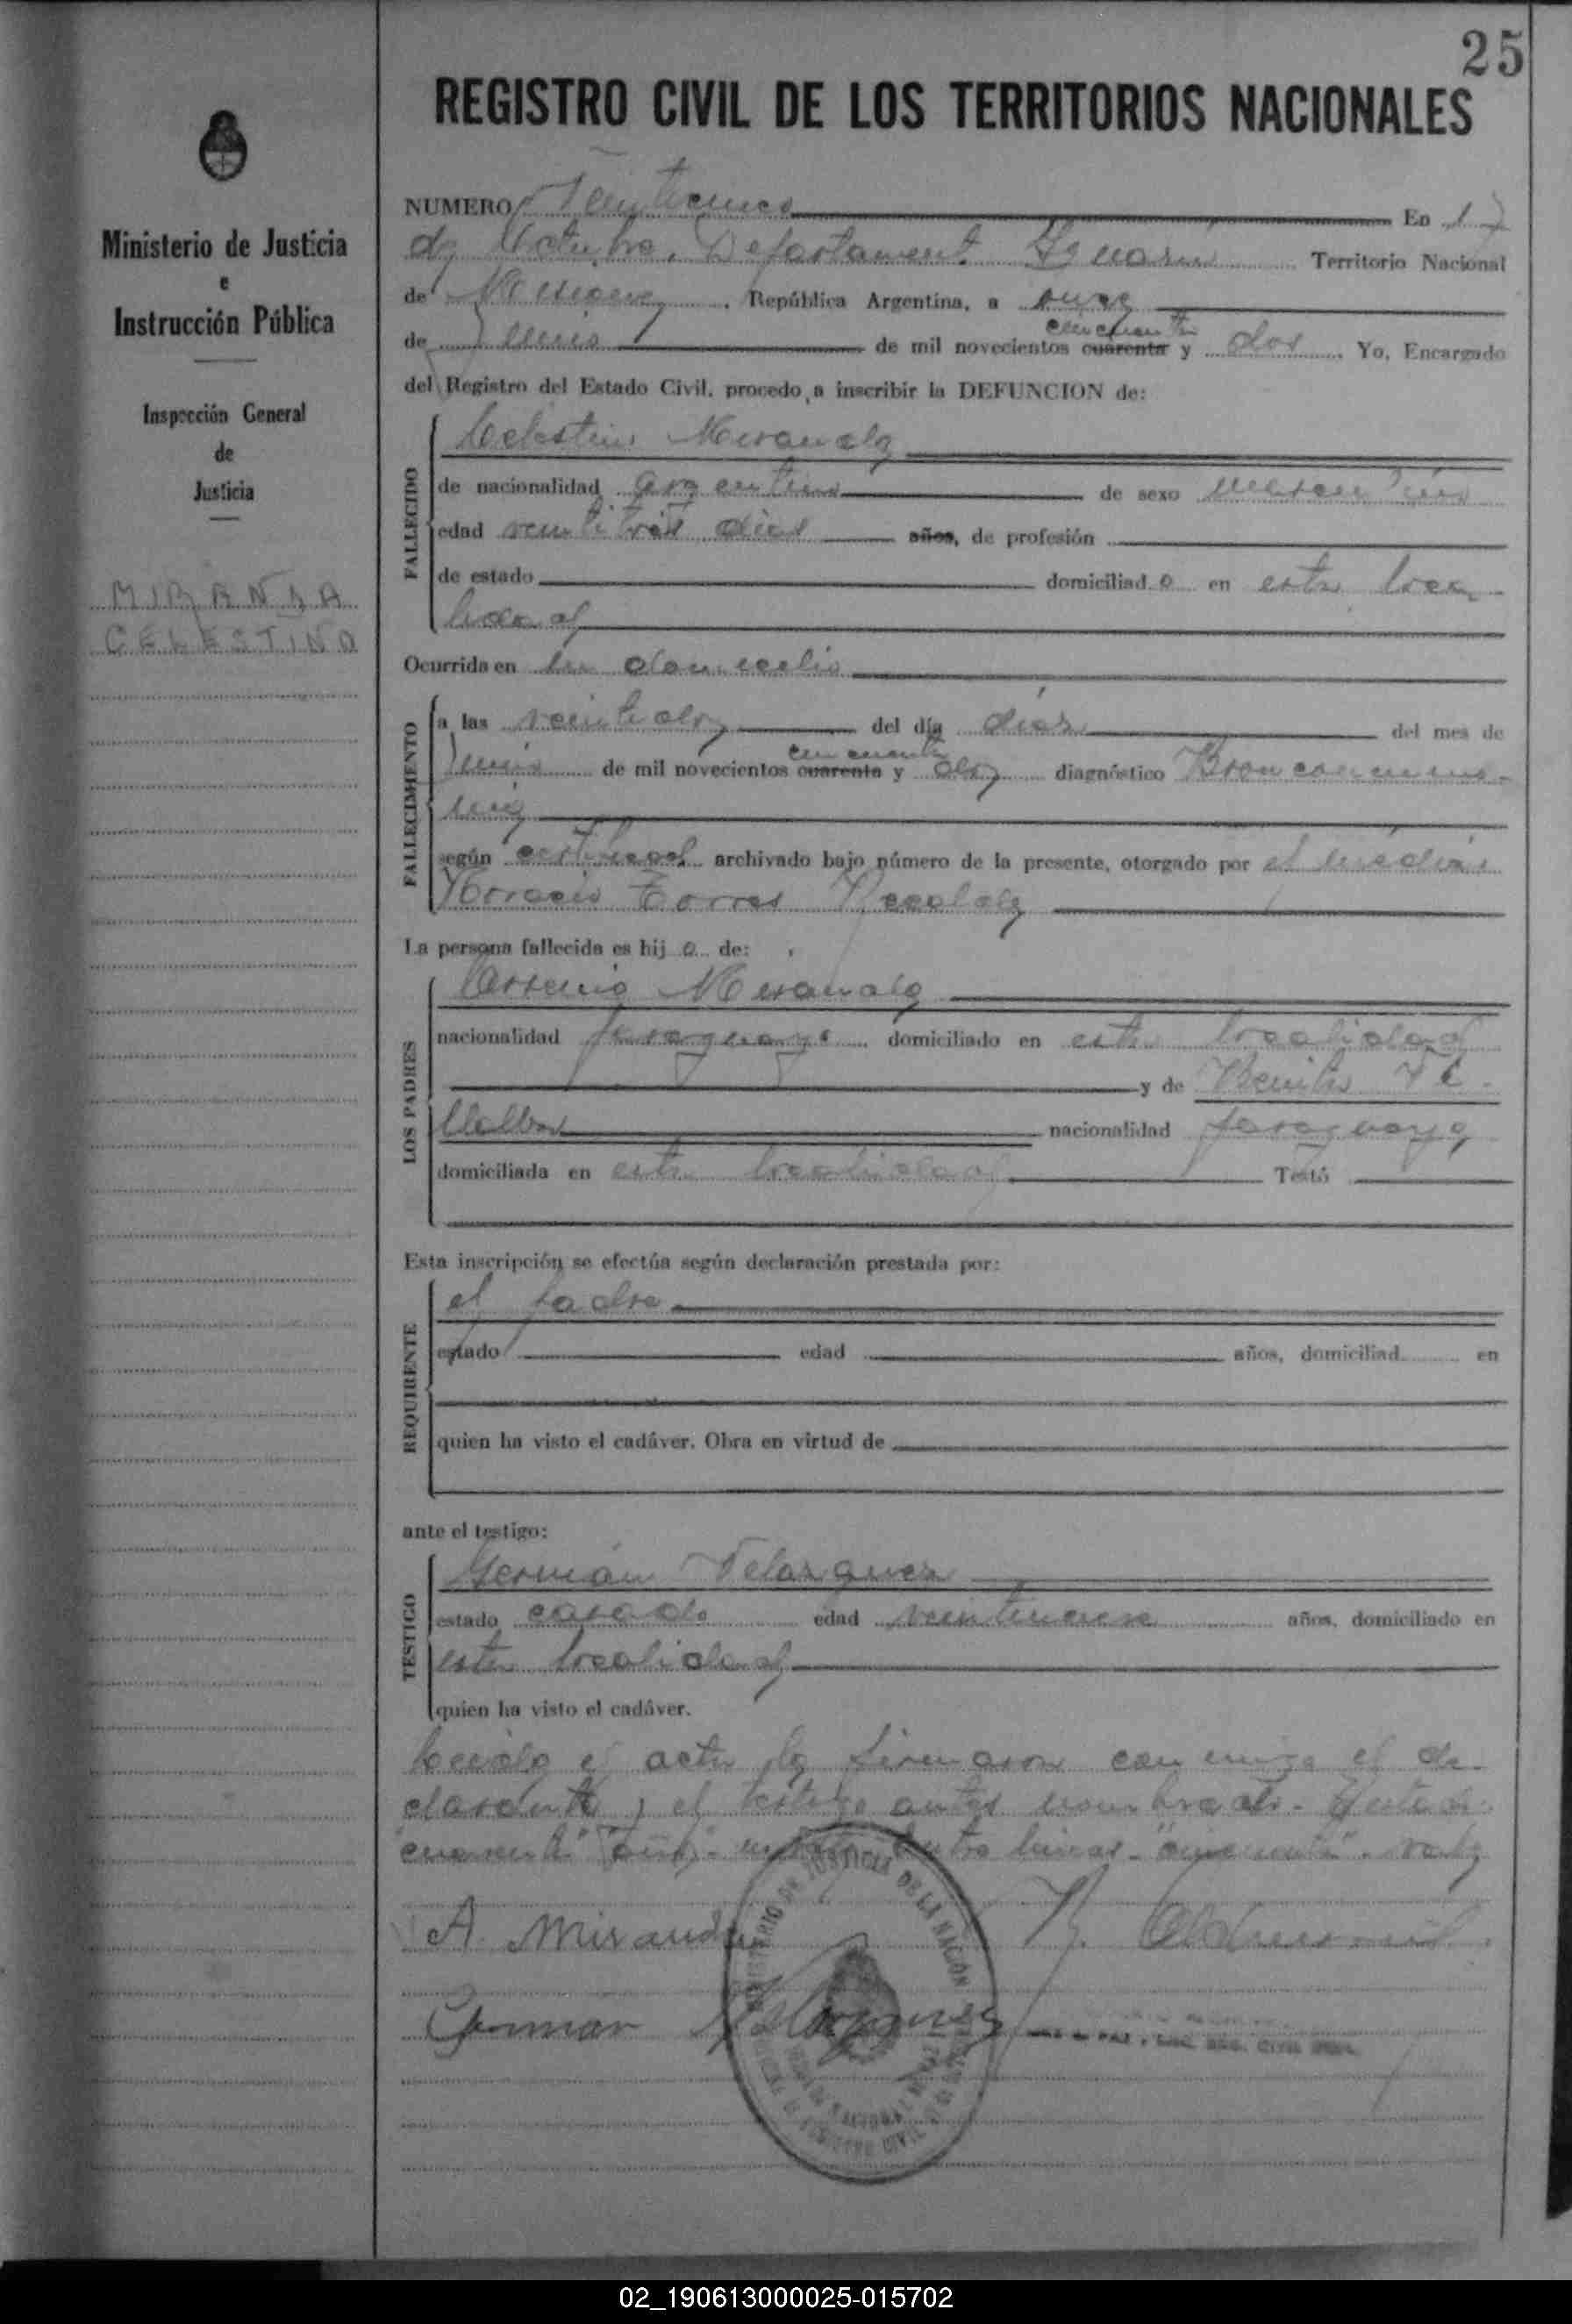 25
REGISTRO CIVIL DE LOS TERRITORIOS NACIONALES
Ministerio de Justicia
e
Instrucción Pública
Inspección General
de
Justicia
MIRANDA
CELESTINO
NUMERO Veinticinco En 17
de Octubre, Departamento Iguazú Territorio Nacional
de Misiones, República Argentina, a once
cincuenta
de Junio de mil novecientos cuarenta y dos. Yo, Encargado
del Registro del Estado Civil, procedo a inscribir la DEFUNCION de:
FALLECIDO
Celestino Miranda
de nacionalidad argentino de sexo masculino
edad veintitrés días años, de profesión
de estado domiciliad o en esta loca
lidad
Ocurrida en su domicilio
FALLECIMIENTO
a las veintidos del día diez del mes de
cincuenta
Junio de mil novecientos cuarenta y dos diagnóstico Bronconeumo-
nia
según certificad archivado bajo número de la presente, otorgado por el médico
Horacio Torres
La persona fallecida es hij o de:
LOS PADRES
Arsenio Miranda
nacionalidad paraguayo domiciliado en esta localidad
y de Benita
nacionalidad paraguaya
domiciliada en esta localidad Testó
Esta inscripción se efectúa según declaración prestada por:
REQUIRENTE
el padre
estado edad años, domiciliad en
quien ha visto el cadáver. Obra en virtud de
ante el testigo:
TESTIGO
Germán Velazquez
estado casado edad veintinueve años, domiciliado en
esta localidad
quien ha visto el cadáver.
Leída el acta la firmaron conmigo el de-
clarante y el testigo antes nombrado.
entre lineas - "cincuenta" - vale
A. Miranda
German Velazquez
MINISTERIO DE JUSTICIA DE LA NACION
02_190613000025-015702